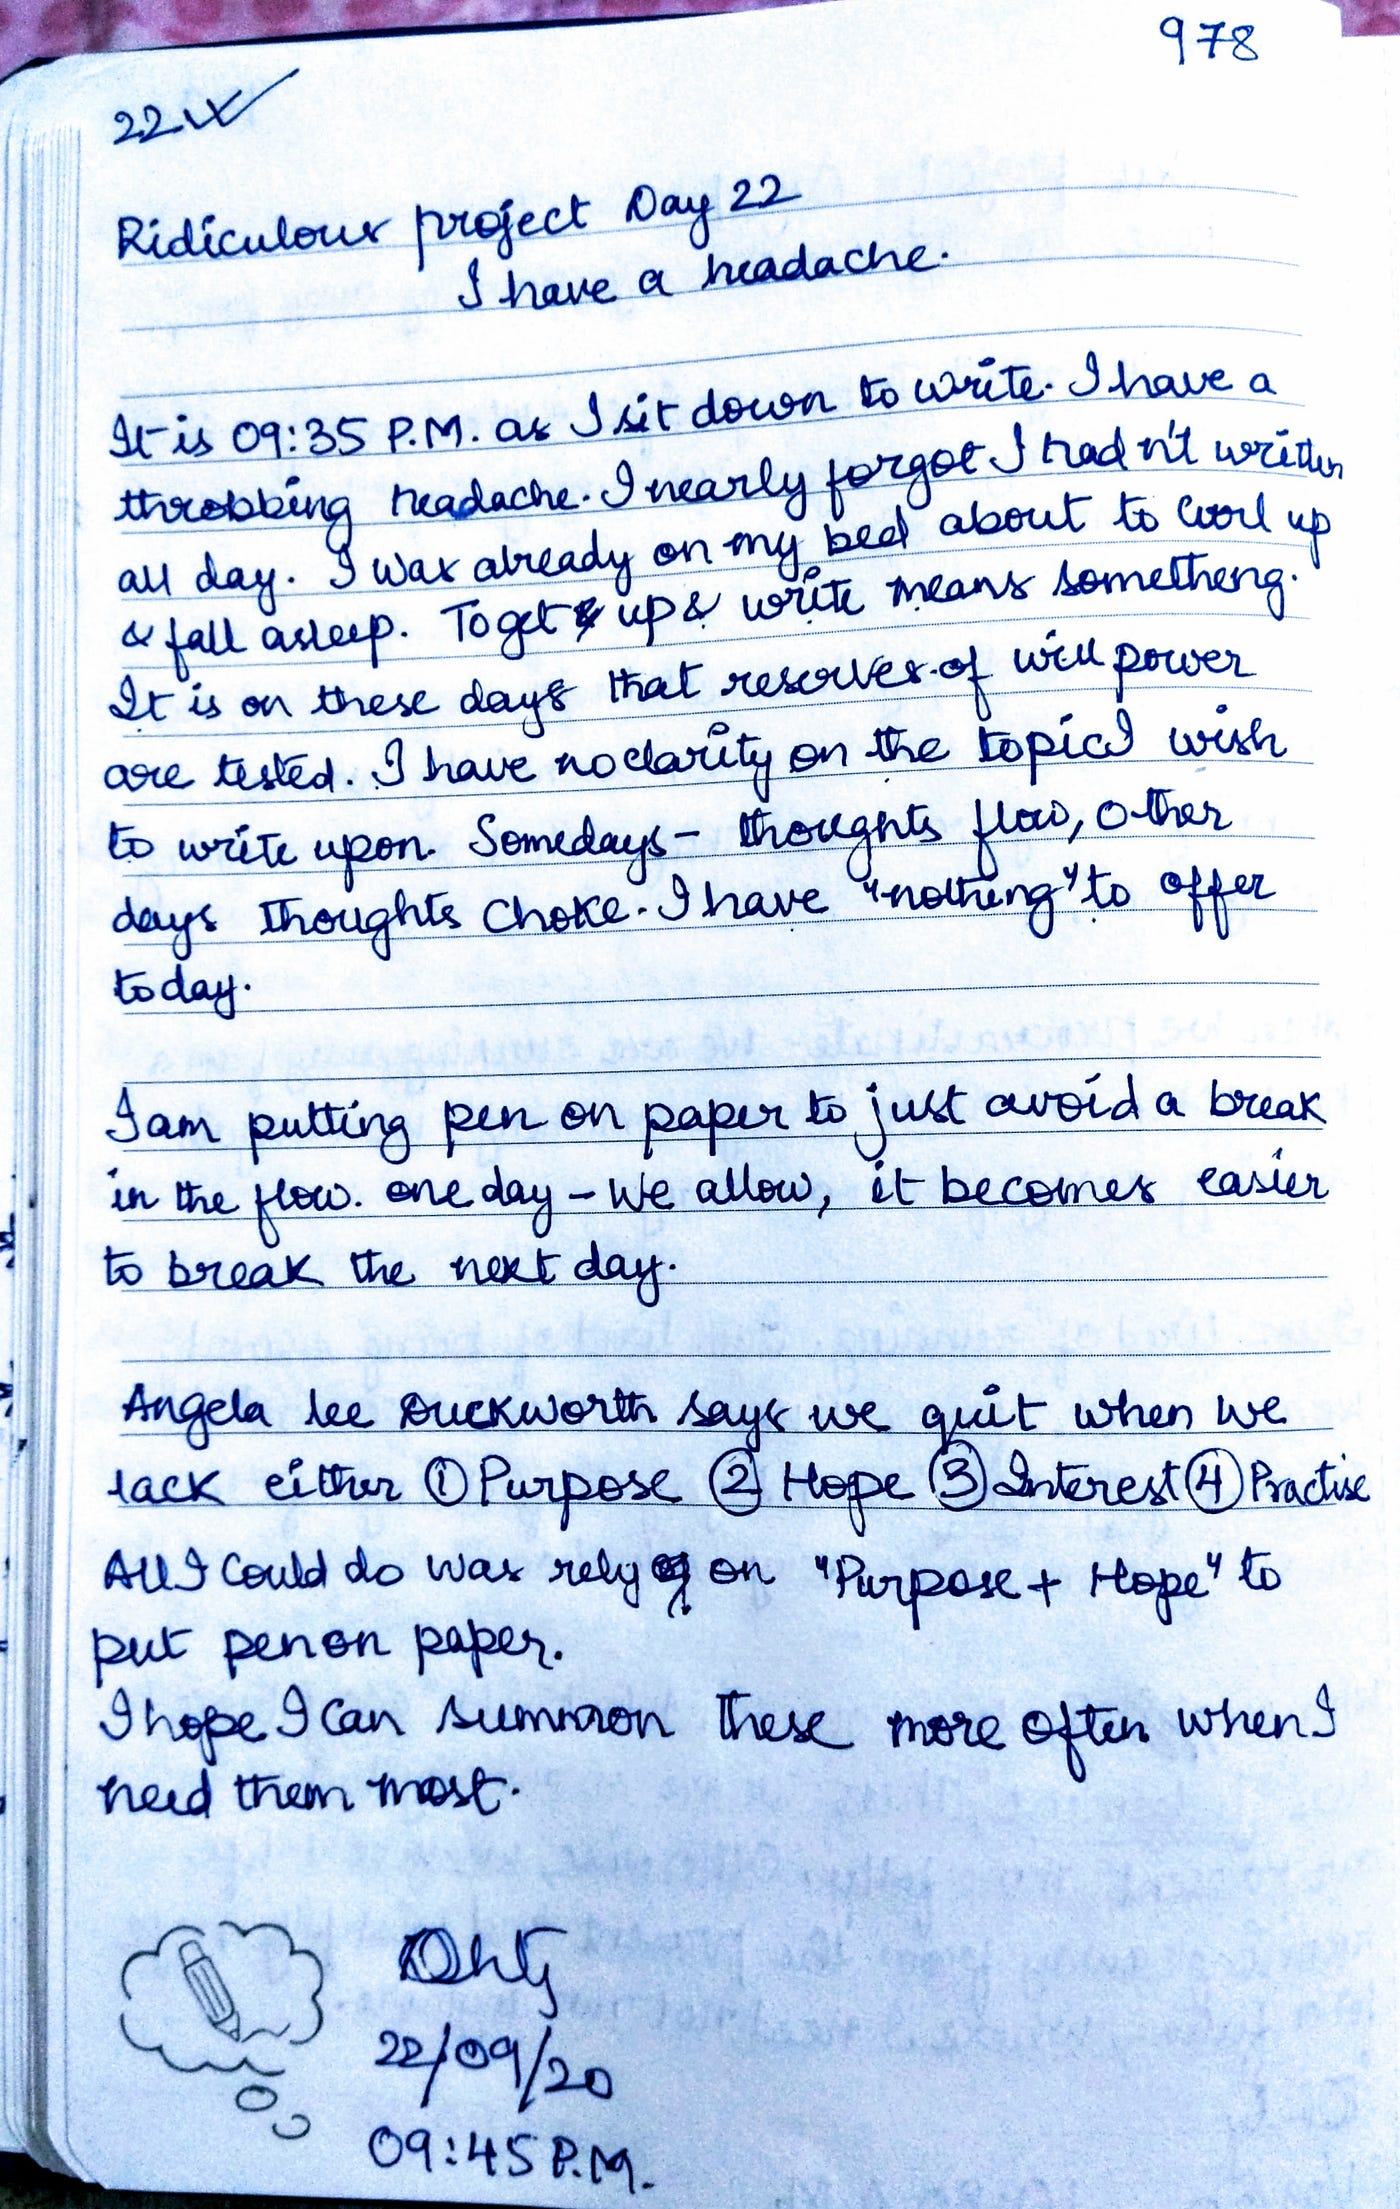 978
22
Ridiculous project Day 22
I have a headache.
It is 09:35 P.M. as I sit down to write. I have a
throbbing headache. I nearly forgot I hadn't written
all day. I was already on my bed about to curl up
& fall asleep. To get up & write means something.
It is on these days that reserves of will power
are tested. I have no clarity on the topic I wish
to write upon. Somedays - thoughts flow, other
days thoughts choke. I have "nothing" to offer
today.
I am putting pen on paper to just avoid a break
in the flow. one day - we allow, it becomes easier
to break the next day.
Angela lee Duckworth says we quit when we
lack either ① Purpose ② Hope ③ Interest ④ Practise
All I could do was rely on "Purpose + Hope" to
put pen on paper.
I hope I can summon these more often when I
need them most.
22/09/20
09:45 P.M.